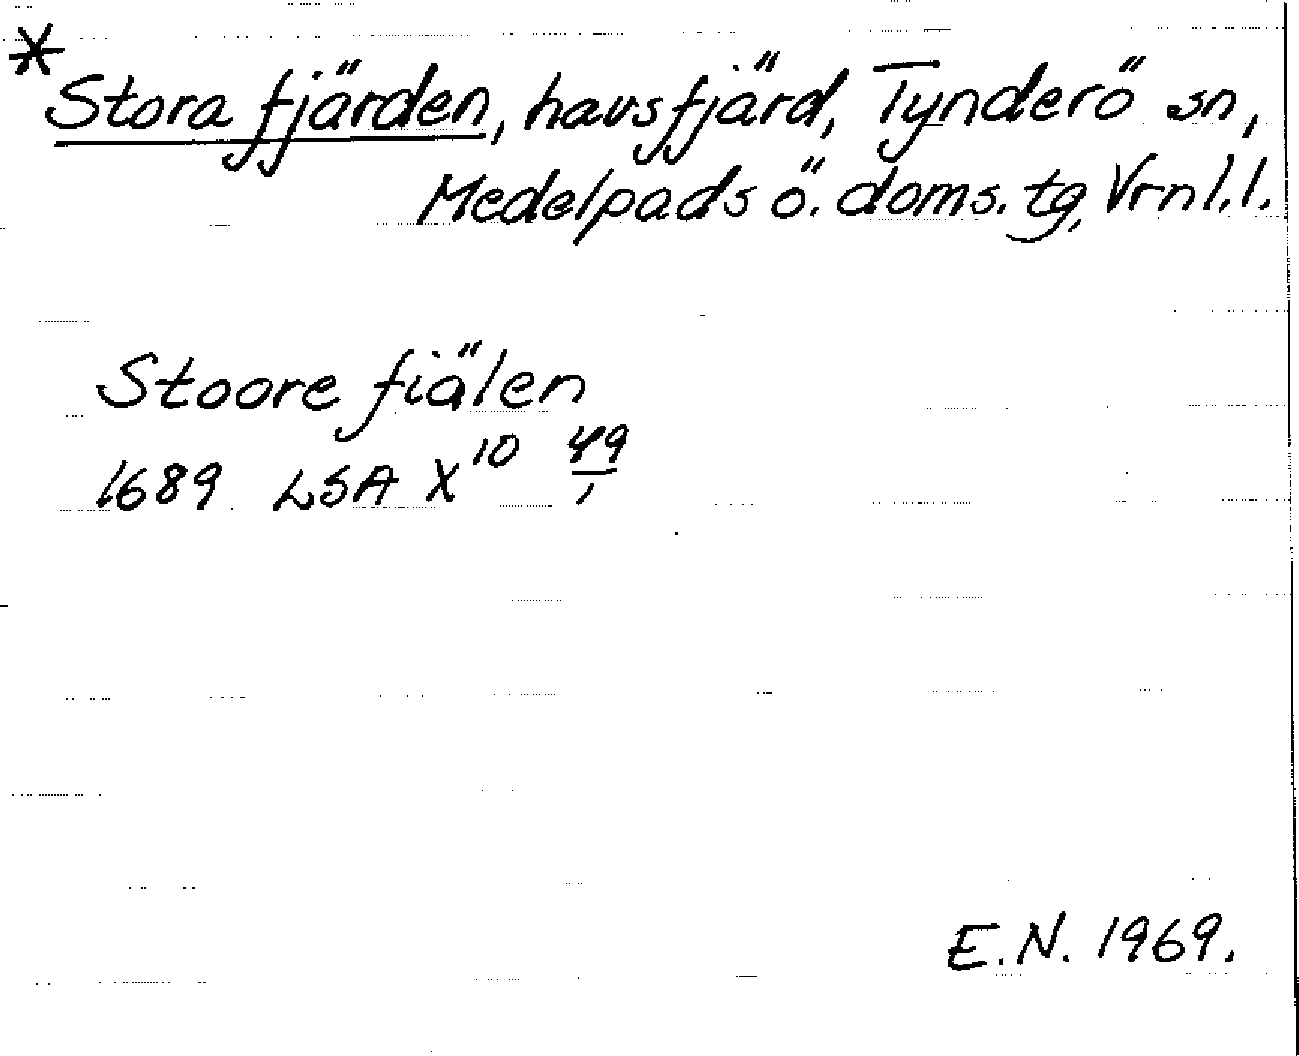 * Stora fjärden, havsfjärd, Tynderö sn,
Medelpads ö. doms. tg, Vrnl. l.
Stoore fiälen
1689 LSA X¹⁰ 49/1
E.N. 1969.